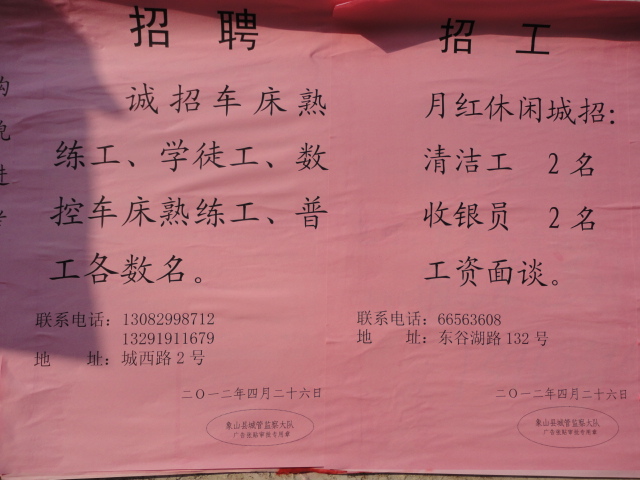 招 聘
诚招车床熟
练工、学徒工、数
控车床熟练工、普
工各数名。
联系电话：13082998712
13291911679
地 址：城西路2号
二〇一二年四月二十六日
象山县城管监察大队
广告张贴审批专用章
招 工
月红休闲城招：
清洁工 2名
收银员 2名
工资面谈。
联系电话：66563608
地 址：东谷湖路132号
二〇一二年四月二十六日
象山县城管监察大队
广告张贴审批专用章